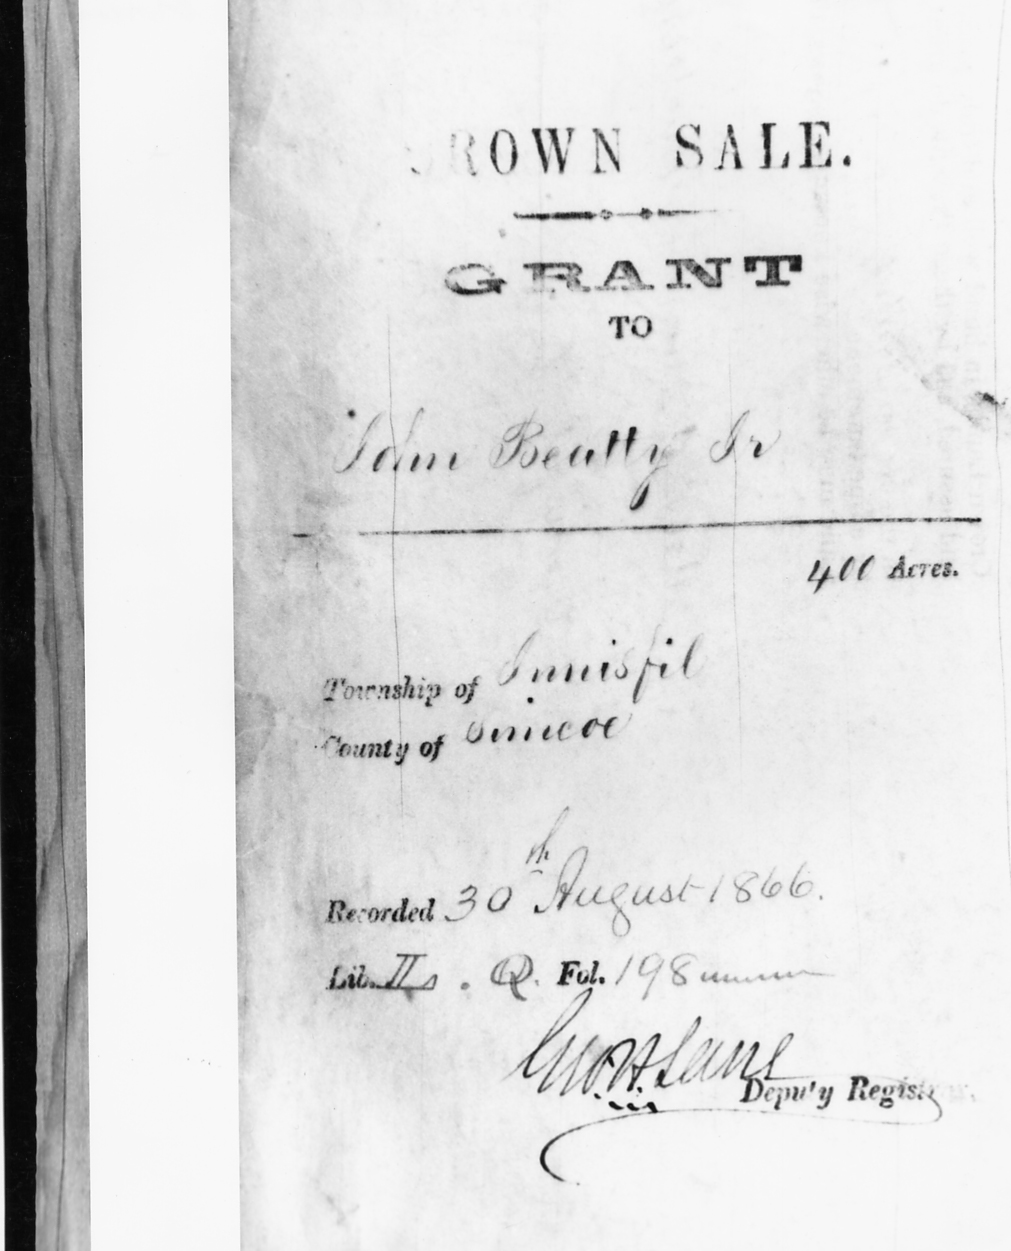 CROWN SALE.
GRANT
TO
Beatty Jr
400 Acres.
Township of Innisfil
County of Simcoe
Recorded 30th August 1866.
Lib. II. Q. Fol. 198
Deputy Registrar.